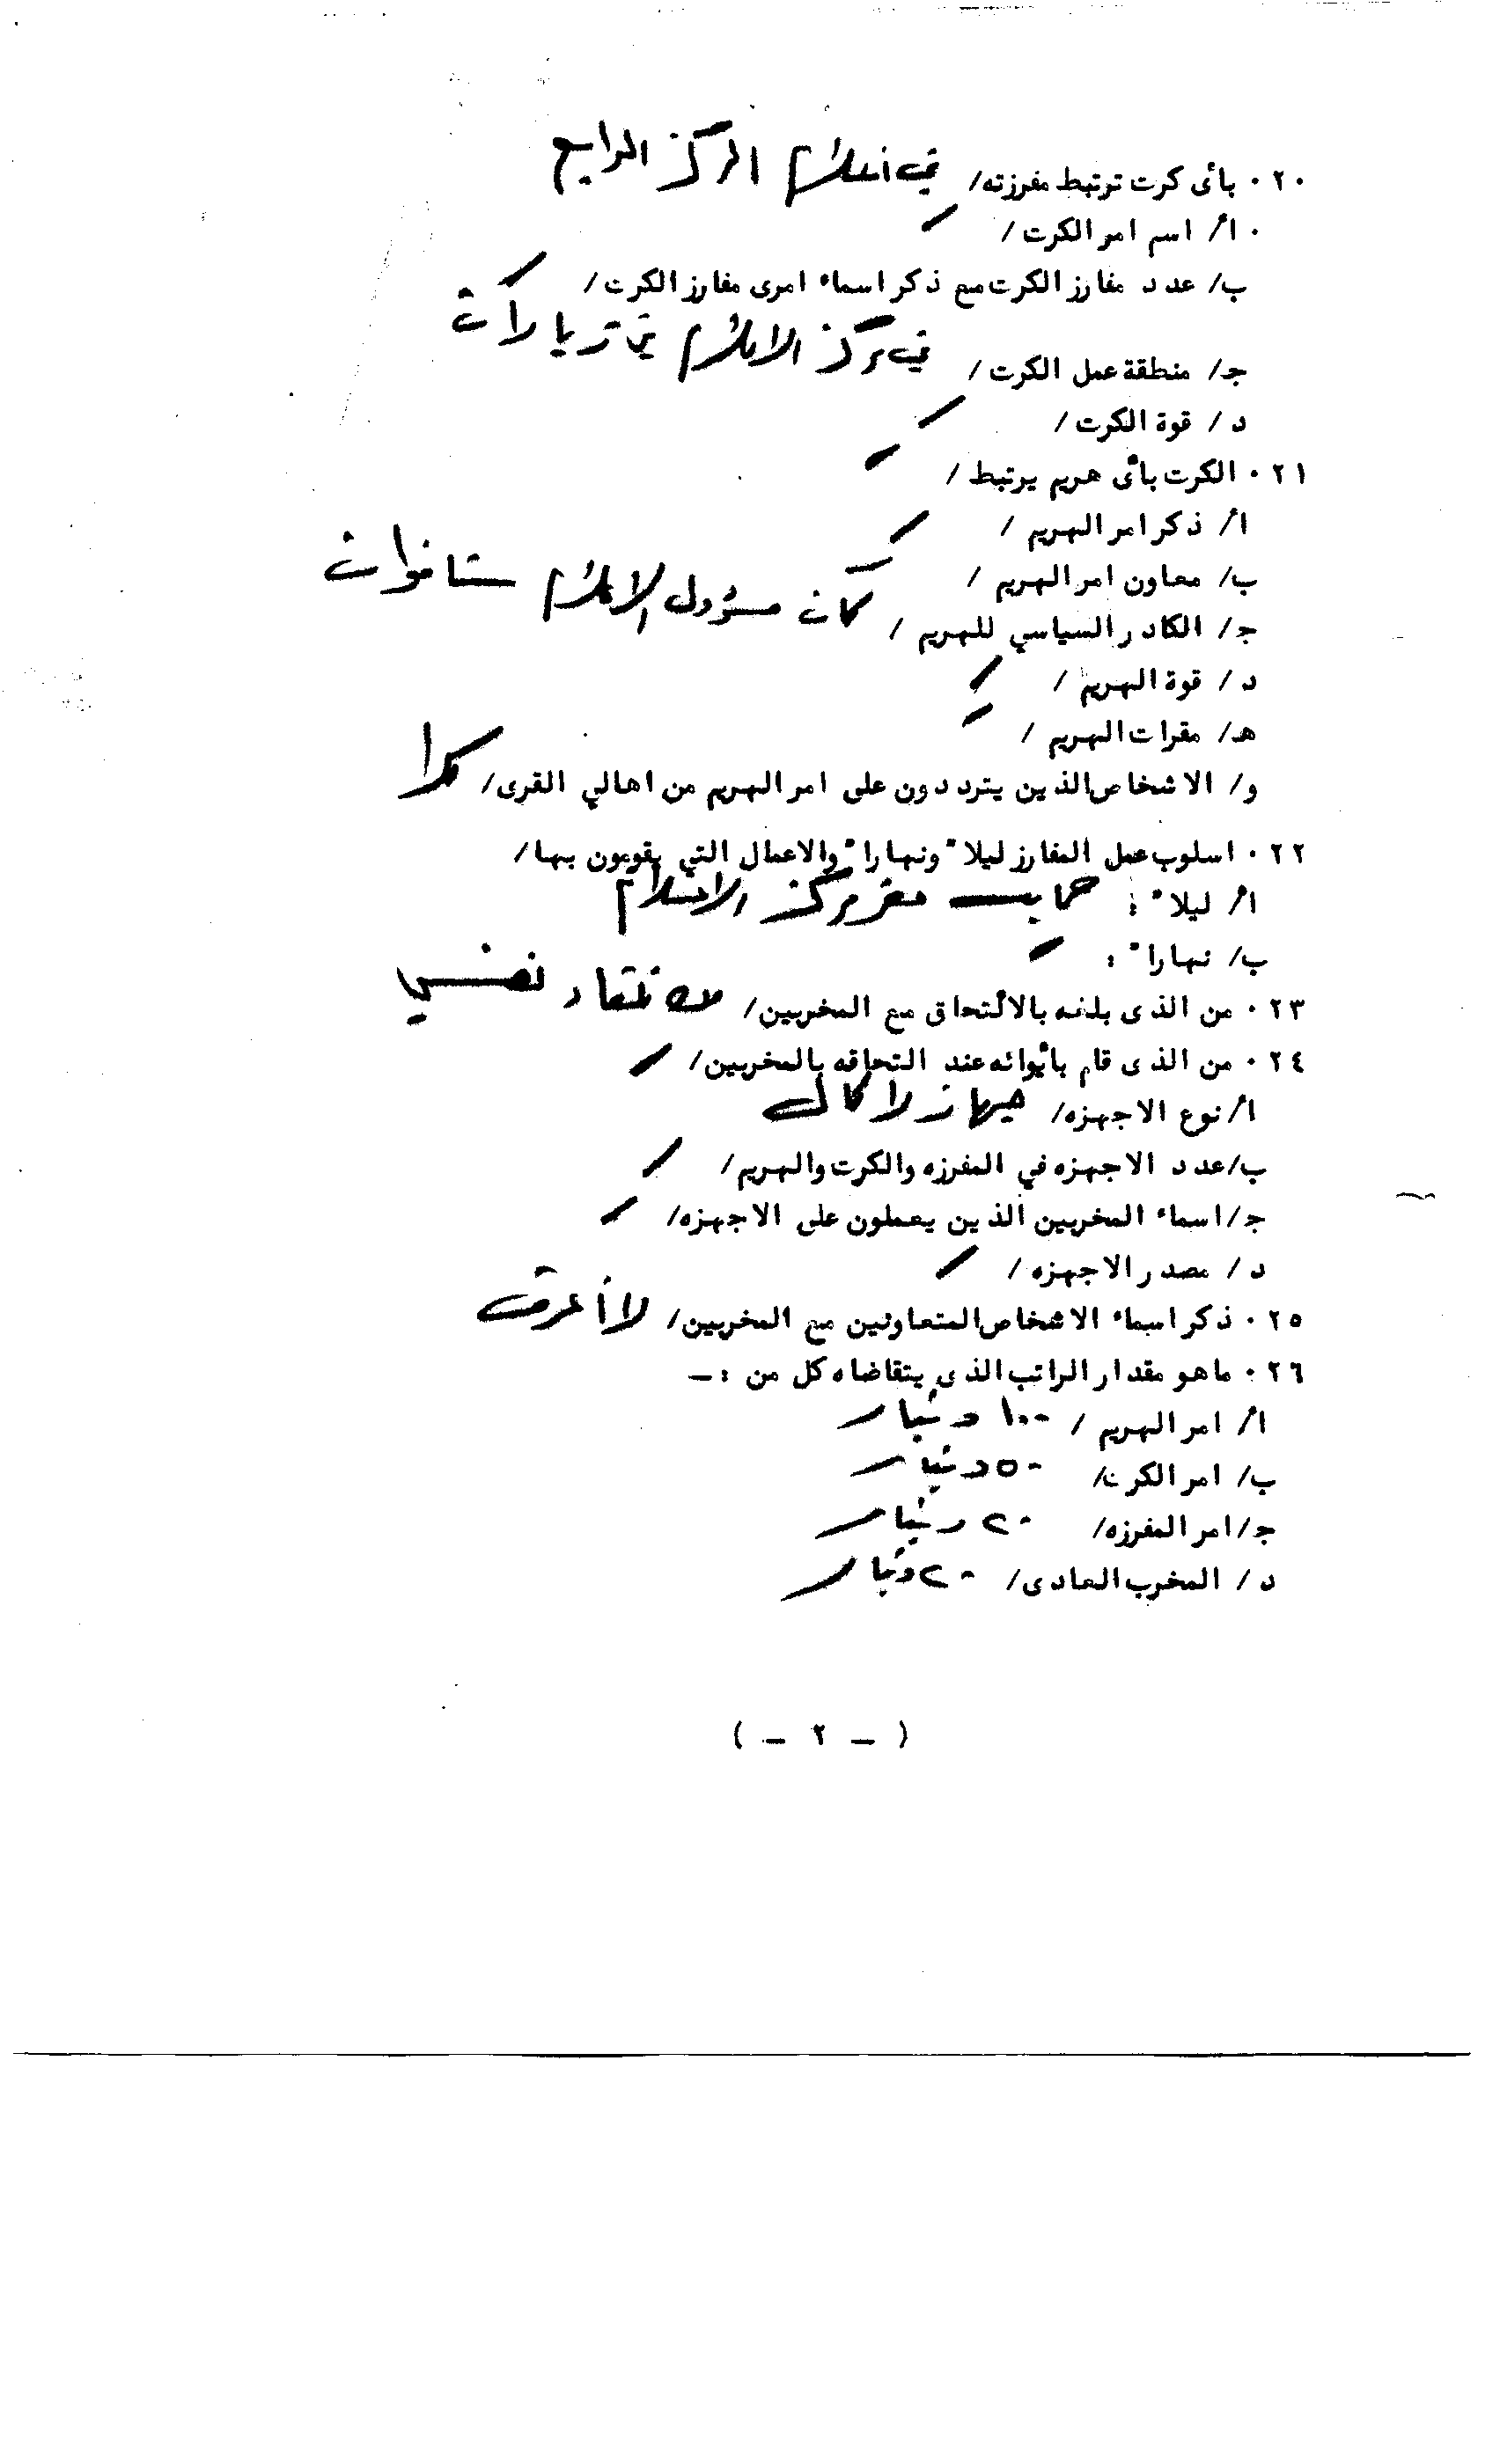 ٢٠٠ بأى كرت ترتبط مفرزته/ في اعلام المركز الرابع
٠ أ/ اسم امر الكرت/
ب/ عدد مفارز الكرت مع ذكر اسماء امرى مفارز الكرت/
ج/ منطقة عمل الكرت/ في مركز الاعلام
د/ قوة الكرت/
٢١٠ الكرت بأى هريم يرتبط/
أ/ ذكر امر الهريم/
ب/ معاون امر الهريم/
ج/ الكادر السياسي للهريم/ كان مسؤول الاعلام
د/ قوة الهريم/
هـ/ مقرات الهريم/
و/ الاشخاص الذين يترددون على امر الهريم من اهالي القرى/
٢٢٠ اسلوب عمل المفارز ليلا" ونهارا" والاعمال التي يقومون بها/
أ/ ليلا" : حمايـة مقر مركز الاعلام
ب/ نهارا" :
٢٣٠ من الذى بلغه بالألتحاق مع المخربين/ نفسي
٢٤٠ من الذى قام بأيوائه عند التحاقه بالمخربين/
أ/ نوع الاجهزه/ جهاز راكال
ب/ عدد الاجهزه في المفرزه والكرت والهريم/
ج/ اسماء المخربين الذين يعملون على الاجهزه/
د/ مصدر الاجهزه/
٢٥٠ ذكر اسماء الاشخاص المتعاونين مع المخربين/ لا أعرف
٢٦٠ ماهو مقدار الراتب الذى يتقاضاه كل من :ـ
أ/ امر الهريم/ ١٠٠ دينار
ب/ امر الكرت/ ٥٠ دينار
ج/ امر المفرزه/ ٢٠ دينار
د/ المخرب العادى/ ٢٠ دينار
( ـ ٢ ـ )